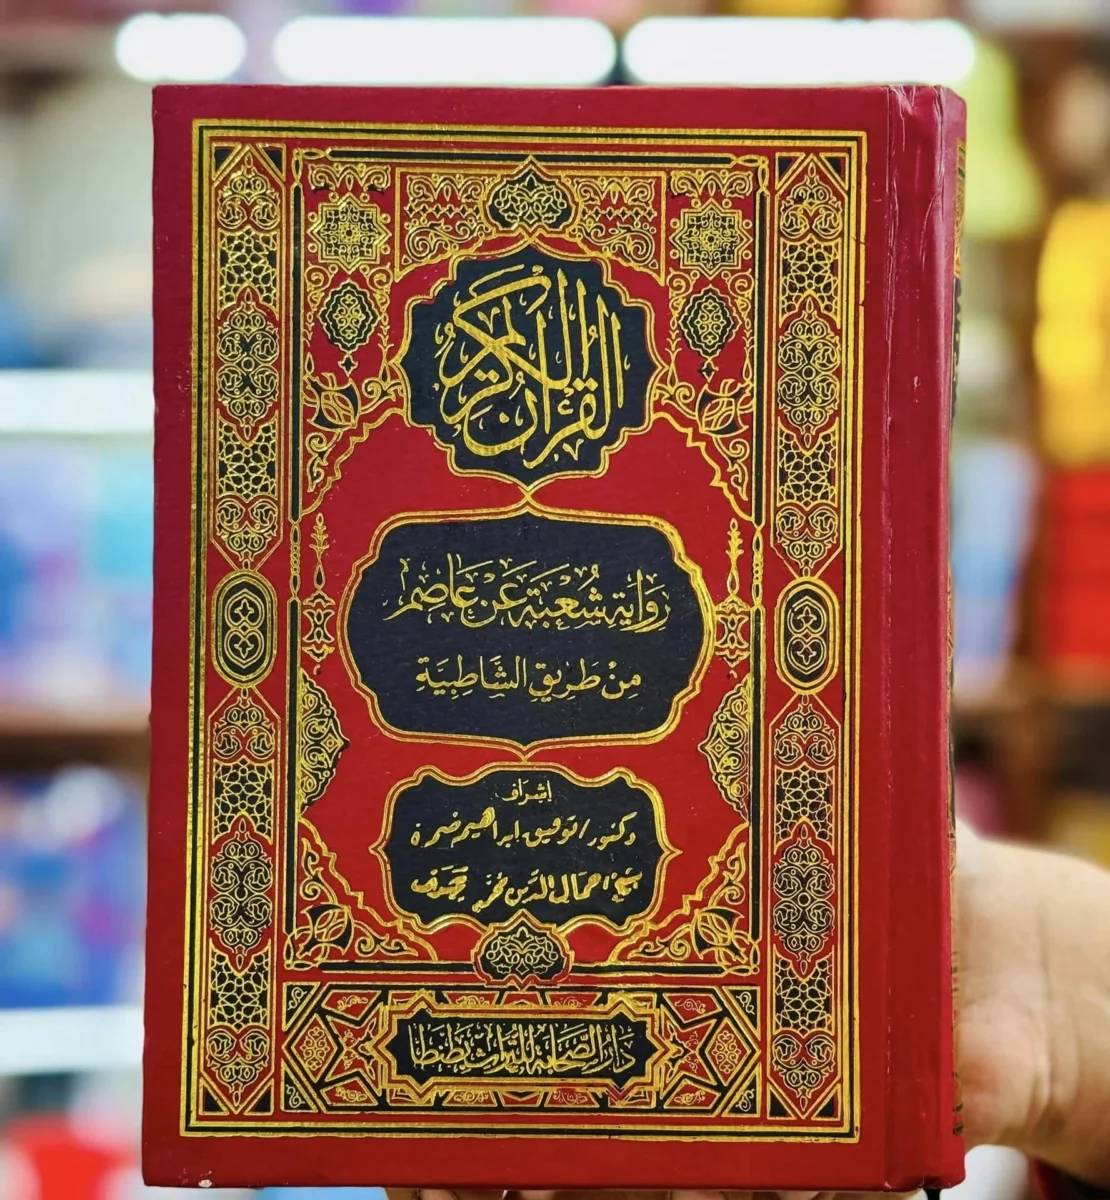 القرآن الكريم
رِوَايَةِ شُعْبَةَ عَنْ عَاصِم
مِنْ طَرِيقِ الشَّاطِبِيَّة
إشراف
دكتور / توفيق ابراهيم ضمرة
شيخ / جمال الدين محمد شرف
دَارُ الصَّحَابَةِ لِلتُّرَاثِ بِطَنْطَا